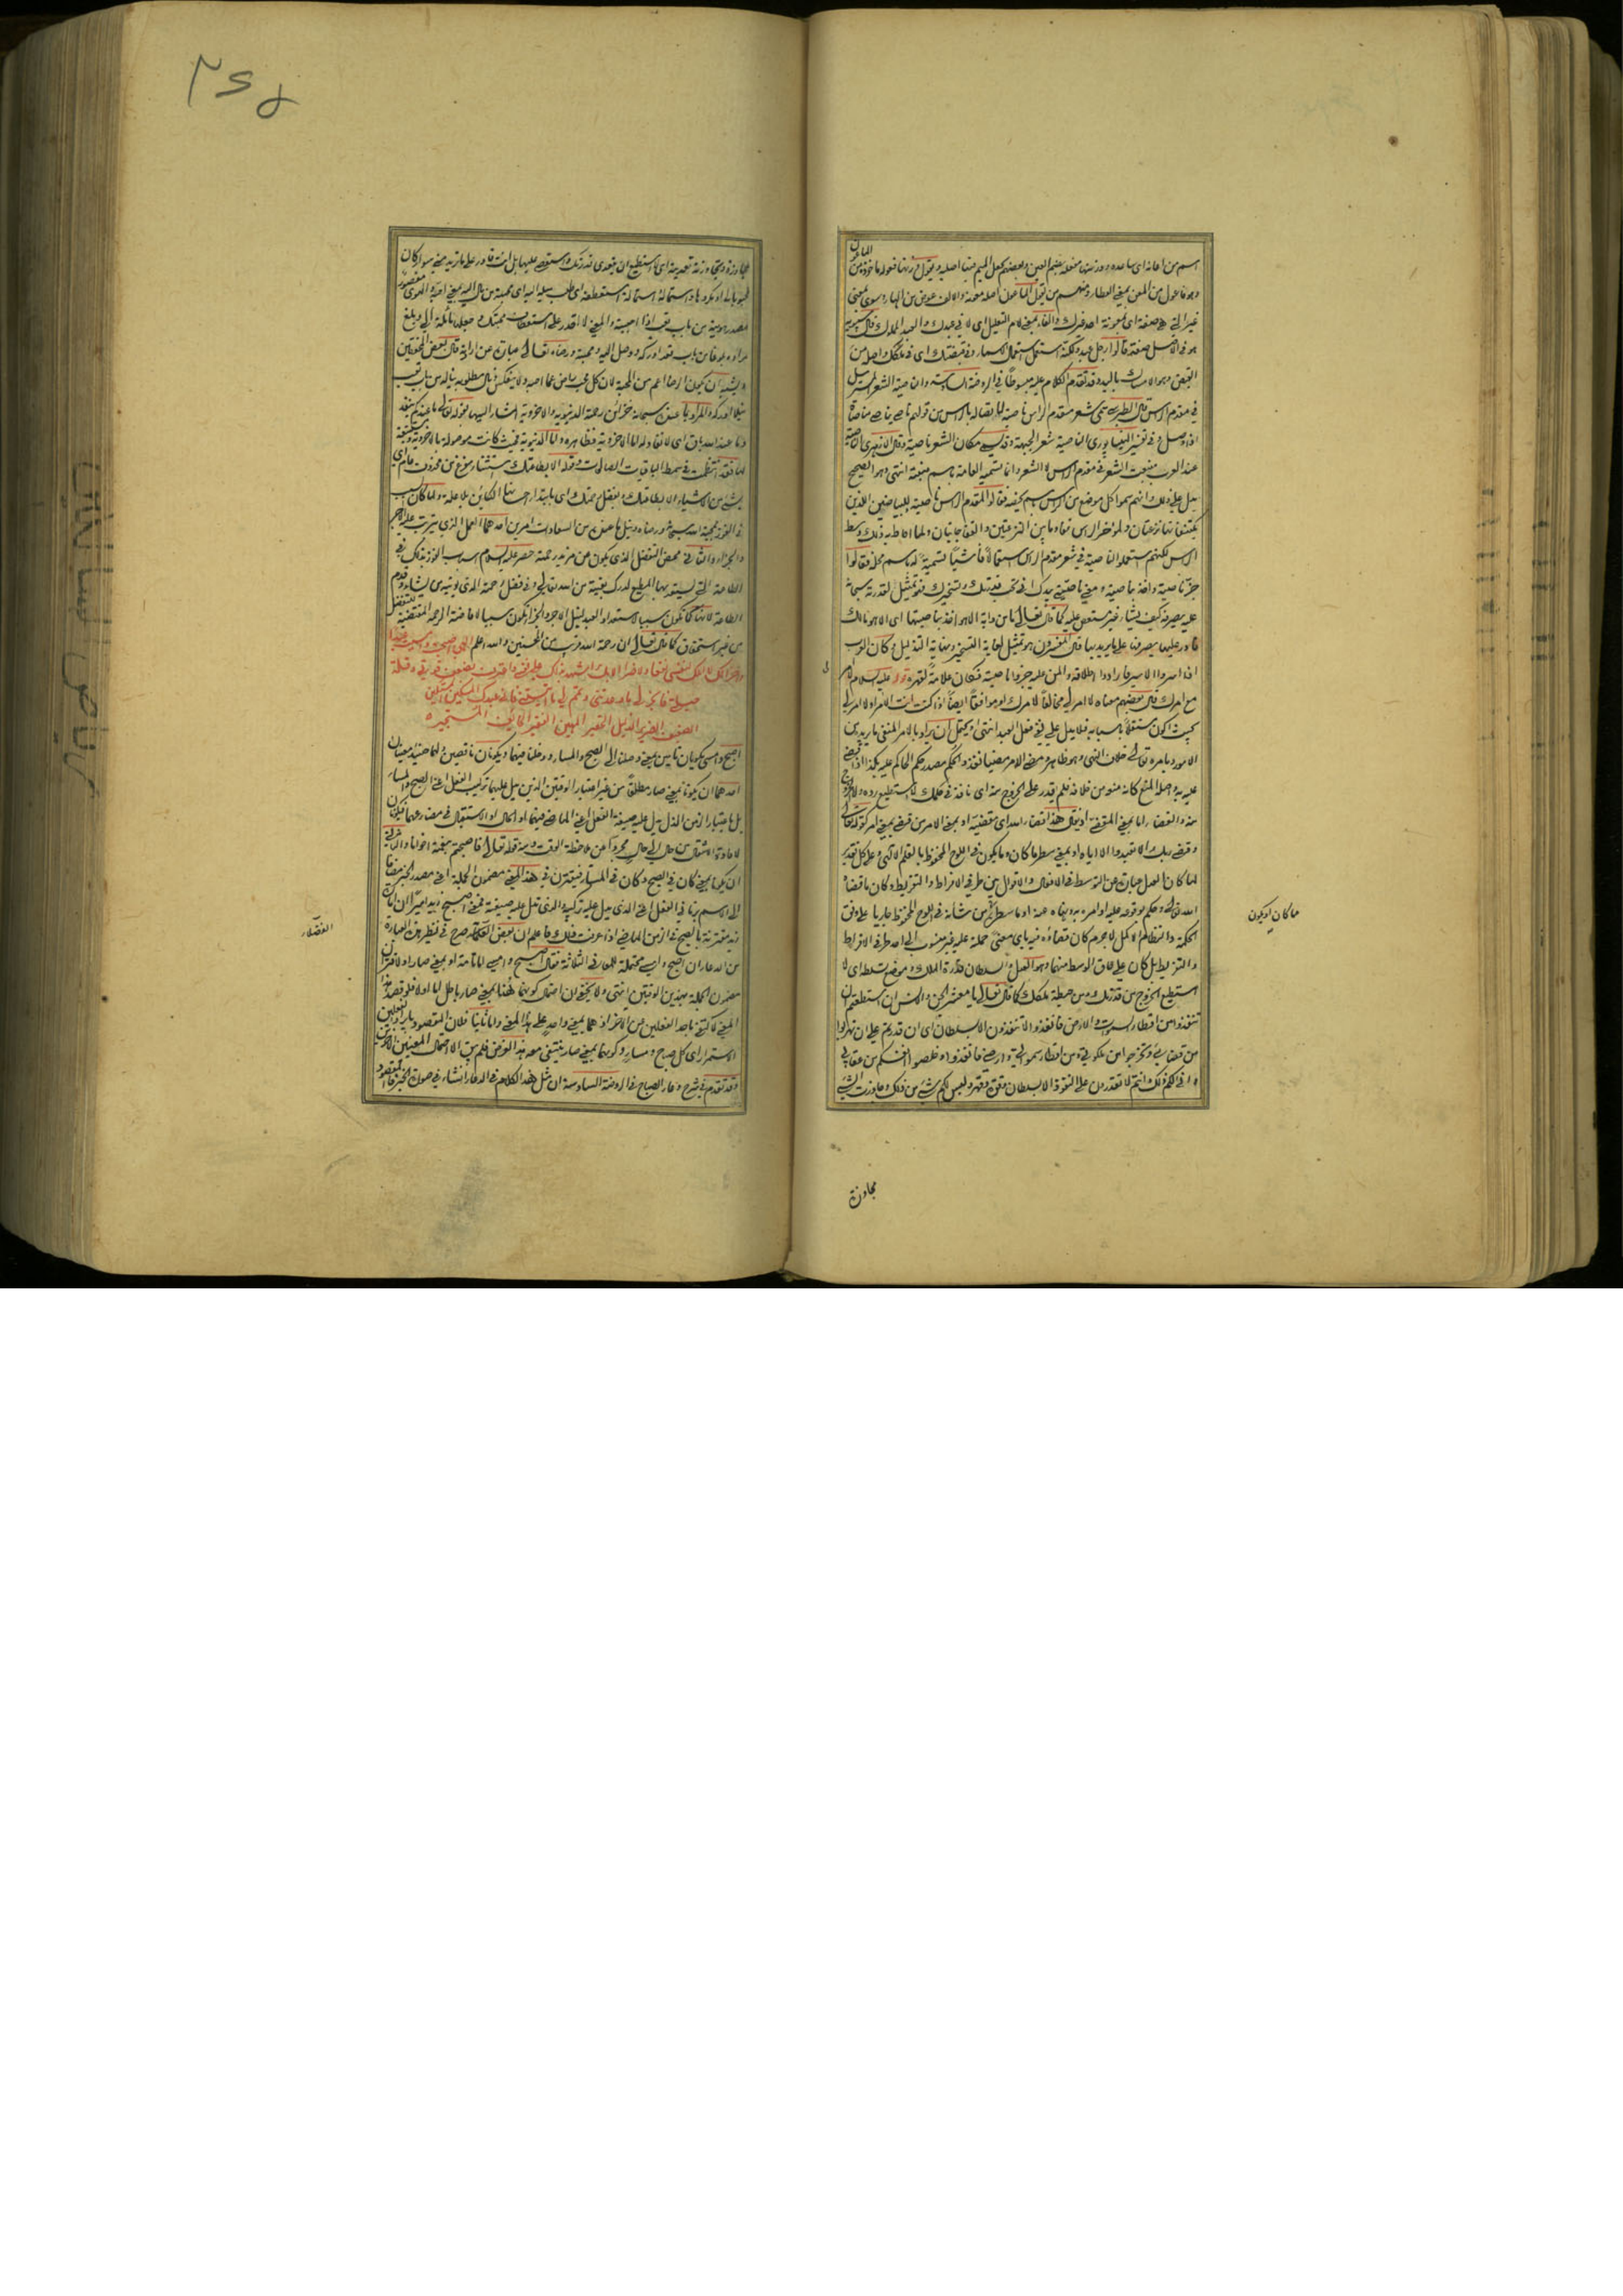 اسم من اعانه اى ساعده ووزنها مفعلة بضم العين وبعضهم يجعل الميم فيها اصلية ويقول وزنها فعولة ماخوذة من الماعون
وهو فاعول من المعن بمعنى العطاء ومنهم من يقول الماعون اصله معونة والالف عوض من الهاء وسوى بمعنى
غير التى هى صفة اى بمعونة احد غيرك والفاء بمعنى لام التعليل اى لانى عبدك والعبد المملوك قال سيبويه
هو فى الاصل صفة قالوا رجل عبد ولكنه استعمل استعمال الاسماء وفى قبضتك اى فى ملكك واصله من
القبض وهو الامساك باليد وقد تقدم الكلام عليه مبسوطا فى الروضة السادسة والناصية الشعر المسترسل
فى مقدم الراس قال الطبرسى سمى شعر مقدم الراس ناصية لاتصاله بالراس من قولهم ناصى يناصى مناصاة
اذا وصل وفى تفسير النيسابورى الناصية شعر الجبهة وقد يسمى مكان الشعر ناصية وقال الازهرى الناصية
عند العرب منبت الشعر فى مقدم الراس لا الشعر وانما تسميه العامة باسم منبته انتهى وهو الصحيح
يدل على ذلك انهم سموا كل موضع من الراس باسم يخصه فقالوا لمقدم الراس ناصية وللبياضين اللذين
يكتنفانها نزعتان ولمؤخر الراس قفا وما بين النزعتين والقفا جانبان ولما احاط به ذلك وسط
الراس لكنهم استعملوا الناصية فى شعر مقدم الراس استعمالا فاشيا تسمية له باسم محله فقالوا
جز ناصيته واخذ بناصيته ومعنى ناصيتى بيدك انى تحت قدرتك وتسخيرك فهو تمثيل لقدرته سبحانه
عليه يصرفه كيف يشاء غير مستعص عليه كما قال تعالى ما من دابة الا هو اخذ بناصيتها اى الا هو مالك
قادر عليها يصرفها على ما يريد بها قال المفسرون هو تمثيل لغاية التسخير ونهاية التذليل وكان العرب
اذا اسروا الاسير فارادوا اطلاقه والمن عليه جزوا ناصيته فكان علامة لقهره قوله عليه السلام لا امر لى
مع امرك قال بعضهم معناه لا امر لى مخالفا لامرك او موافقا ايضا اذا كنت انت الامر او لا امر لى
بحيث اكون مستقلا باسبابه فلا يدل على نفى فعل العبد انتهى ويحتمل ان يراد بالامر المنفى ما يريد من
الامور وبامره تعالى خلاف النهى وهو ظاهر ومضى الامر مضيا نفذ والحكم مصدر حكم الحاكم عليه بكذا اذا قضى
عليه به واصله المنع كانه منعه من خلافه فلم يقدر على الخروج منه اى نافذ فى حكمك لا استطيع رده ولا الخروج
منه والقضاء اما بمعنى المقضى اذ يقال هذا قضاء الله اى مقضيه او بمعنى الامر من قضى بمعنى امر كقوله تعالى
وقضى ربك الا تعبدوا الا اياه او بمعنى سطر ما كان وما يكون فى اللوح المحفوظ بالقلم الالهى وعلى كل تقدير
لما كان العدل عبارة عن التوسط فى الافعال والاقوال بين طرفى الافراط والتفريط وكان ما قضاه
الله تعالى وحكم بوقوعه عليه او امره به ونهاه عنه او ما سطر من شانه فى اللوح المحفوظ جاريا على وفق
الحكمة والنظام الاكمل لا جرم كان قضاؤه فيه باى معنى حملته عليه غير منسوب الى احد طرفى الافراط
والتفريط بل كان على حاق الوسط منهما وهو العدل والسلطان قدرة الملك وموضع تسلطه اى لا
استطيع الخروج من قدرتك ومن حيطة ملكك كما قال تعالى يا معشر الجن والانس ان استطعتم ان
تنفذوا من اقطار السموات والارض فانفذوا لا تنفذون الا بسلطان اى ان قدرتم على ان تهربوا
من قضائى وتخرجوا من ملكوتى ومن اقطار سمواتى وارضى فانفذوا وخلصوا انفسكم من عقابى
وانى لكم ذلك وانتم لا تقدرون على النفوذ الا بسلطان وقوة وقهر وليس لكم شىء من ذلك وجاوزت الشىء
ما كان او يكون
مجاوزة
مجاوزة وتجاوزته تعديته اى لا استطيع ان اتعدى قدرتك واستعصى عليها بل انت قادر على ما تريده منى سواء كان
محبوبا لى او مكروها واستماله استمالة استعطفه اى طلب ميله اليه اى محبته من مال اليه بمعنى احبه والهوى مقصورا
مصدر هويته من باب تعب اذا احببته والمعنى لا اقدر على استعطاف محبتك وجعلها مائلة الى وبلغ
مراده بلوغا من باب قعد ادركه ووصل اليه ومحبته ورضاه تعالى عبارة عن ارادته قال بعض المحققين
ويشبه ان يكون الرضا اعم من المحبة لان كل محب راض عما احبه ولا ينعكس ونال مطلوبه يناله من باب تعب
نيلا ادركه والمراد بما عنده سبحانه خزائن رحمته الدنيوية والاخروية المشار اليها بقوله تعالى ما عندكم ينفد
وما عند الله باق اى لا نفاد له اما الاخروية فظاهرة واما الدنيوية فحيث كانت موصولة بالاخروية ومستتبعة
لها فقد انتظمت فى سمط الباقيات الصالحات وقوله الا بطاعتك استثناء مفرغ من محذوف عام اى
بشىء من الاشياء الا بطاعتك وبفضل رحمتك واى بابتداء احسانها الكائن بلا علة ولما كان سبب
الفوز بمحبة الله سبحانه ورضاه ونيل ما عنده من السعادات امرين احدهما العمل الذى يترتب عليه الاجر
والجزاء والثانى محض التفضل الذى يكون من مزيد رحمته حصر عليه السلام اسباب الفوز بذلك فى
الطاعة التى يستعد بها المطيع لدرك بغيته من الله تعالى وفى فضل رحمته الذى يؤتيه من يشاء وقدم
الطاعة لانها كما تكون سببا لاستعداد العبد لنيل الاجر والجزاء تكون سببا لافاضة الرحمة المقتضية للتفضل
من غير استحقاق كما قال تعالى ان رحمة الله قريب من المحسنين والله اعلم الهى اصبحت وامسيت عبدا
داخرا لك لا املك لنفسى نفعا ولا ضرا الا بك اشهد بذلك على نفسى واعترف بضعف قوتى وقلة
حيلتى فانجز لى ما وعدتنى وتمم لى ما اتيتنى فانى عبدك المسكين المستكين
الضعيف الضرير الذليل الحقير المهين الفقير الخائف المستجير
اصبح وامسى يكونان تامين بمعنى دخلنا فى الصبح والمساء ودخلنا فيهما ويكونان ناقصين ولهما حينئذ معنيان
احدهما ان يكونا بمعنى صار مطلقا من غير اعتبار الوقتين الذين يدل عليهما تركيب الفعل اعنى الصبح والمساء
بل باعتبار الزمن الذى يدل عليه صيغة الفعل اعنى الماضى فيهما او الحال او الاستقبال فى مضارعهما فيكونان
لافادة الانتقال من حال الى حال مجردا عن ملاحظة الوقت ومنه قوله تعالى فاصبحتم بنعمته اخوانا والثانى
ان يكونا بمعنى كان فى الصبح وكان فى المساء فيقترن فى هذا المعنى مضمون الجملة اعنى مصدر الخبر مضافا
الى الاسم بزمانى الفعل اعنى الذى يدل عليه تركيبه والذى تدل عليه صيغته فمعنى اصبح زيد اميرا ان امارة
زيد مقترنة بالصبح فى الزمن الماضى اذا عرفت ذلك فاعلم ان بعض الفضلاء صرح فى نظير هذه العبارة
من الدعاء ان اصبح وامسى محتملة للمعانى الثلاثة فقال اصبح وامسى اما تامة او بمعنى صار او لاقتران
مضمون الجملة بهذين الوقتين انتهى ولا يخفى ان احتمال كونهما هنا بمعنى صار باطل اما اولا فلو قصد هذا
المعنى لاكتفى باحد الفعلين عن الاخر اذ هما بمعنى واحد على هذا المعنى واما ثانيا فلان المقصود بايراد الفعلين
الاستمرار اى كل صباح ومساء وكونهما بمعنى صار ينتفى معه هذا الغرض فلم يبق الا احتمال المعنيين الاخرين
وقد تقدم فى شرح دعاء الصباح فى الروضة السادسة ان مثل هذا الكلام فى الدعاء انشاء فى صورة الخبر فالمقصود
الفضلاء